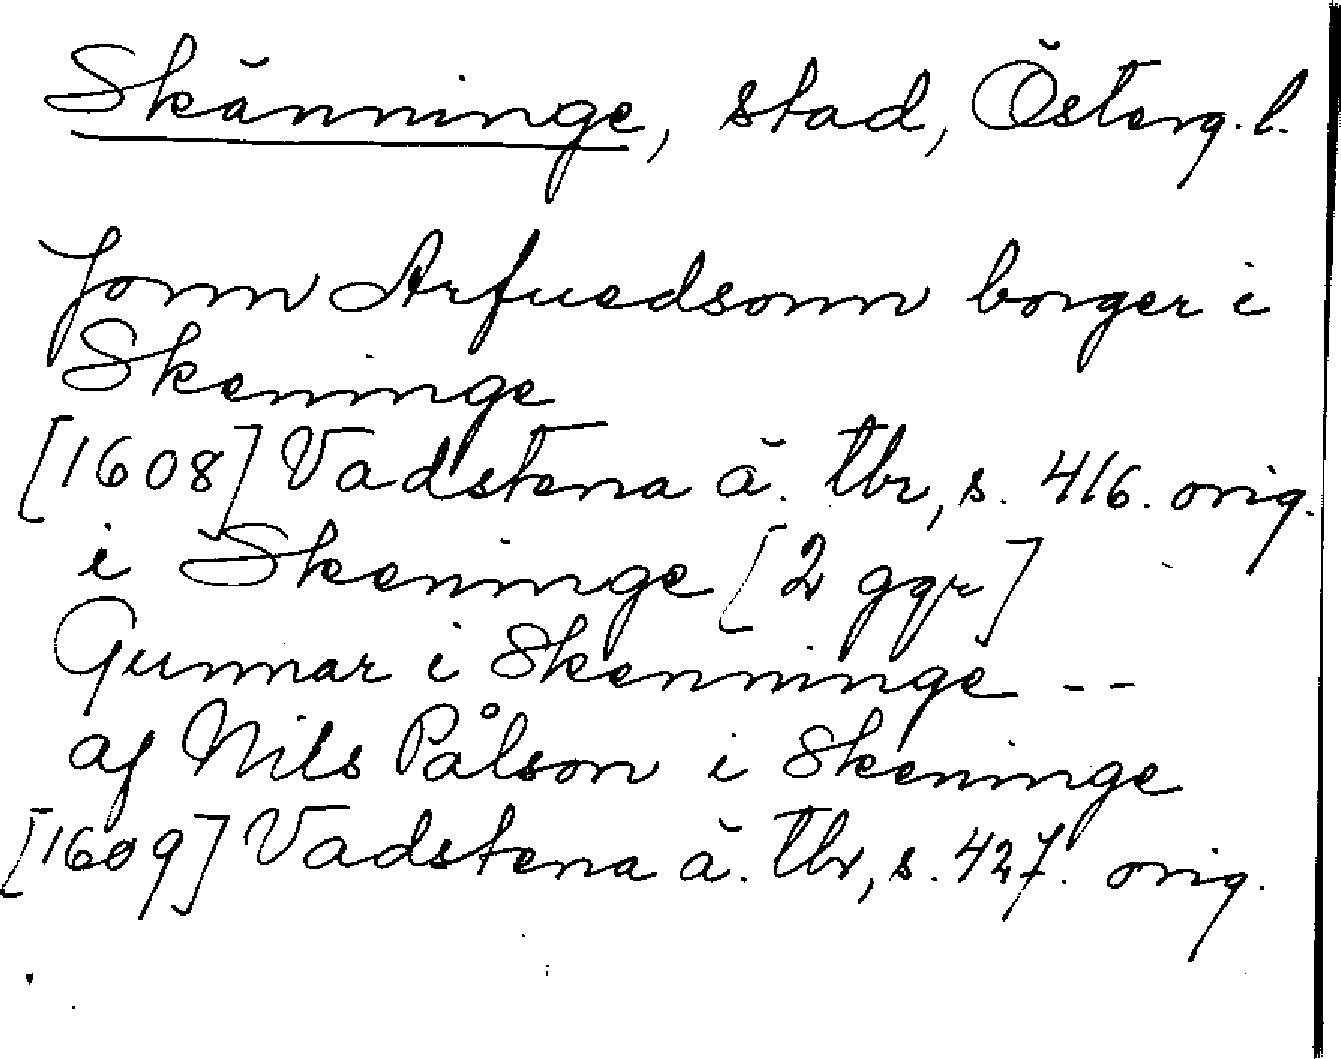 Skänninge, stad, Österg. l.
Jonn Arfuedsonn borger i
Skeninge
[1608] Vadstena ä. tbr, s. 416. orig.
i Skeninge [2 ggr]
Gunnar i Skenninge --
af Nils Pålson i Skeninge
[1609] Vadstena ä. tbr, s. 427. orig.